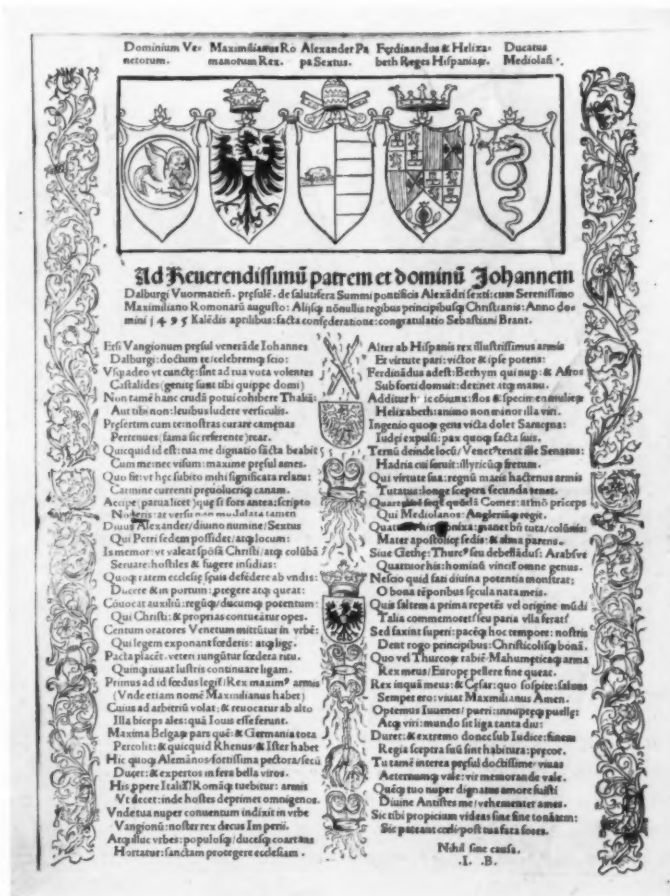 Dominium Ve-
netorum.
Maximilianus Ro
manorum Rex.
Alexander Pa
pa Sextus.
Ferdinandus & Heliza-
beth Reges Hispaniaꝝ.
Ducatus
Mediolañ.
Ad Reuerendissimũ patrem et dominũ Johannem
Dalburgi Vuormatieñ. pręsulẽ. de salutifera Summi pontificis Alexãdri sexti: cum Serenissimo
Maximiliano Romonarũ augusto: Alijsqȝ nõnullis regibus principibusqȝ Christianis: Anno do-
mini 1495 Kalẽdis aprilibus: facta confęderatione: congratulatio Sebastiani Brant.
Etsi Vangionum pręsul venerãde Iohannes
Dalburgi: doctum te celebremqȝ scio:
Vsqȝ adeo vt cunctę: sint ad tua vota volentes
Castalides (genitę sunt tibi quippe domi)
Non tamẽ hanc crudã potui cohibere Thaliã:
Aut tibi non: leuibus ludere versiculis.
Pręsertim cum te: nostras curare camęnas
Pertenues (fama sic referente) rear.
Quicquid id est: tua me dignatio fãcta beabit
Cum me: nec visum: maxime pręsul ames.
Quo fit: vt hęc subito mihi significata relatu:
Carmine currenti pręuolucriqȝ canam.
Accipe patua licet) quę si fors antea: scripto
Diuus Alexander/ diuino numine/ Sextus
Qui Petri sedem possidet/ atqȝ locum:
Is memor: vt valeat spõsã Christi/ atqȝ colũbã
Seruare: hostiles & fugere insidias:
Quoqȝ ratem ecclesię sęuis defẽdere ab vndis:
Ducere & in portum: ꝓtegere atqȝ queat:
Cõuocat auxiliũ: regũqȝ/ ducumqȝ potentum:
Qui Christi: & proprias contueãtur opes.
Centum oratores Venetum mittũtur in vrbẽ:
Qui legem exponant fœderis: atqȝ ligę.
Pacta placẽt. veteri iungũtur fœdera ritu.
Quinqȝ iuuat lustris continuare ligam.
Primus ad id fœdus legit/ Rex maximꝰ armis
(Vnde etiam nomẽ Maximilianus habet)
Cuius ad arbitriũ volat: & reuocatur ab alto
Illa biceps ales: quã Iouis esse ferunt.
Maxima Belgaꝝ pars quẽ: & Germania tota
Percolit: & quicquid Rhenus & Ister habet
Hic quoqȝ Alemãnos: fortissima pectora/ secũ
Ducet: & expertos in fera bella viros.
His ꝓpere Italiã/ Romãqȝ tuebitur: armis
Vt decet: inde hostes deprimet omnigenos.
Vnde tua nuper conuentum indixit in vrbe
Vangionũ: noster rex decus Imperii.
Atqȝ illuc vrbes: populosqȝ/ ducesqȝ coartans
Hortatur: sanctam protegere ecclesiam.
Alter ab Hispanis rex illustrissimus armis
Et virtute pari: victor & ipse potens:
Ferdinãdus adest: Bethym qui nuꝑ: & Afros
Sub sorti domuit: detinet atqȝ manu.
Helizabeth: animo non minor illa viri.
Ingenio quoꝝ gens victa dolet Samęna:
Iudęi expulsi: pax quoqȝ facta suis.
Ternũ deinde locũ/ Venetꝰ tenet ille Senatus:
Hadria cui seruit: illyricũqȝ fretum.
Qui virtute sua: regnũ maris hactenus armis
Tutatus: longe sceptra secunda tenet.
Qui Mediolanos: Anglerãqȝ regit.
Mater apostolicę sedis: & alma parens.
Siue Gethę: Thurcꝰ seu debellãdus: Arabsve
Quatuor his: hominũ vincit omne genus.
Nescio quid fati diuina potentia monstrat:
O bona tẽporibus sęcula nata meis.
Quis saltem a prima repetẽs vel origine mũdi
Talia commemoret: seu paria vlla ferat?
Sed faxint superi: pacẽqȝ hoc tempore: nostris
Dent rogo principibus: Christicolisqȝ bonã.
Quo vel Thurcoꝝ rabiẽ: Mahumęticaqȝ arma
Rex meus/ Europę pellere fine queat.
Rex inquã meus: & Cęsar: quo sospite: saluus
Semper ero: viuat Maximilianus Amen.
Optemus Iuuenes/ pueri: innuptęqȝ puellę:
Atqȝ viri: mundo sit liga tanta diu:
Duret: & extremo donec sub Iudice: finem
Regia sceptra suũ sint habitura: pręcor.
Tu tamẽ interea pręsul doctissime: viuas
Aeternumqȝ vale: vir memorande vale.
Quęqȝ tuo nuper dignatus amore fuisti
Diuine Antistes me/ vehementer ames.
Sic tibi propicium videas sine fine tonãtem:
Sic pateant cœli: post tua fata fores.
Nihil sine causa.
.I. B.